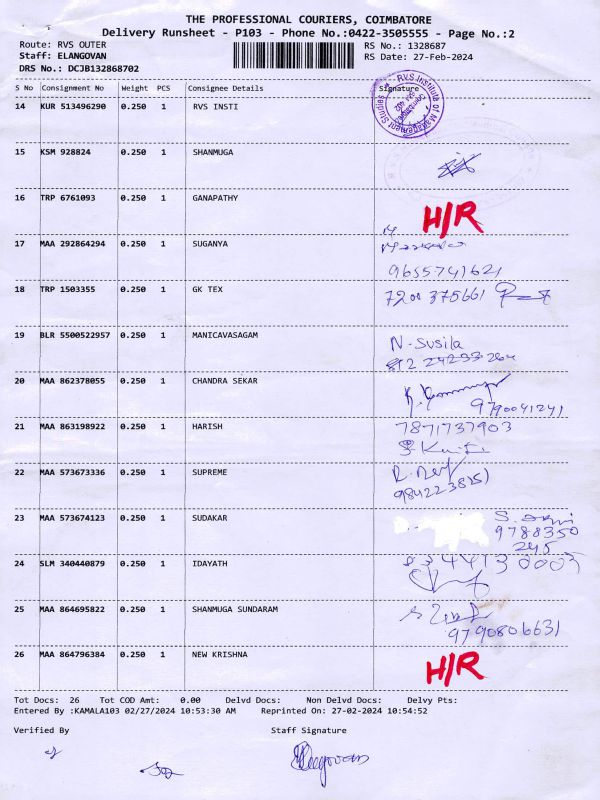 THE PROFESSIONAL COURIERS, COIMBATORE
Delivery Runsheet - P103 - Phone No.:0422-3505555 - Page No.:2
Route: RVS OUTER
Staff: ELANGOVAN
DRS No.: DCJB132868702
RS No.: 1328687
RS Date: 27-Feb-2024
S No Consignment No Weight PCS Consignee Details Signature
14 KUR 513496290 0.250 1 RVS INSTI
RVS Institute of Management Studies
15 KSM 928824 0.250 1 SHANMUGA
16 TRP 6761093 0.250 1 GANAPATHY
H/R
17 MAA 292864294 0.250 1 SUGANYA
9655741621
18 TRP 1503355 0.250 1 GK TEX
7200375661
19 BLR 5500522957 0.250 1 MANICAVASAGAM
N. Susila
20 MAA 862378055 0.250 1 CHANDRA SEKAR
9790041241
21 MAA 863198922 0.250 1 HARISH
7871737903
22 MAA 573673336 0.250 1 SUPREME
23 MAA 573674123 0.250 1 SUDAKAR
9788350
245
24 SLM 340440879 0.250 1 IDAYATH
25 MAA 864695822 0.250 1 SHANMUGA SUNDARAM
9790806631
26 MAA 864796384 0.250 1 NEW KRISHNA
H/R
Tot Docs: 26 Tot COD Amt: 0.00 Delvd Docs: Non Delvd Docs: Delvy Pts:
Entered By :KAMALA103 02/27/2024 10:53:30 AM Reprinted On: 27-02-2024 10:54:52
Verified By Staff Signature